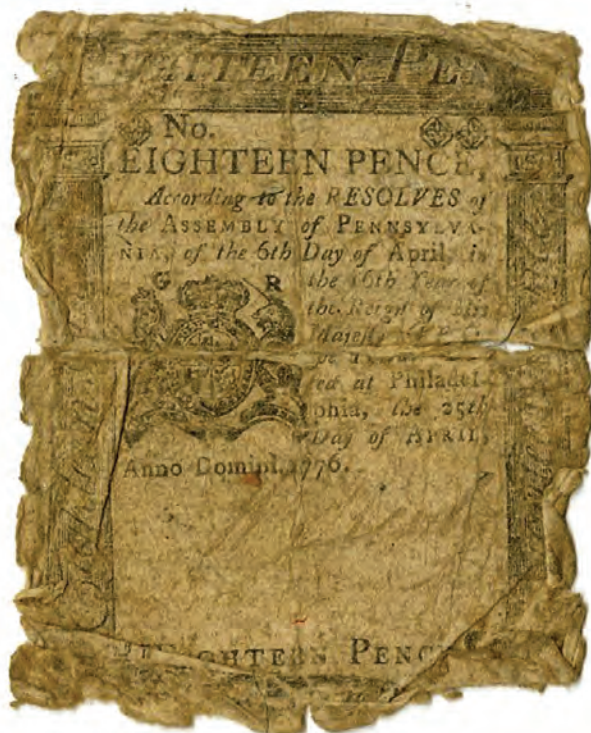 No.
EIGHTEEN PENCE,
According to the RESOLVES of
the ASSEMBLY of PENNSYLVA-
NIA, of the 6th Day of April, in
G R
the 16th Year of
the Reign of His
Majesty
ed at Philadel-
phia, the 25th
Day of APRIL,
Anno Domini, 1776.
EIGHTEEN PENCE